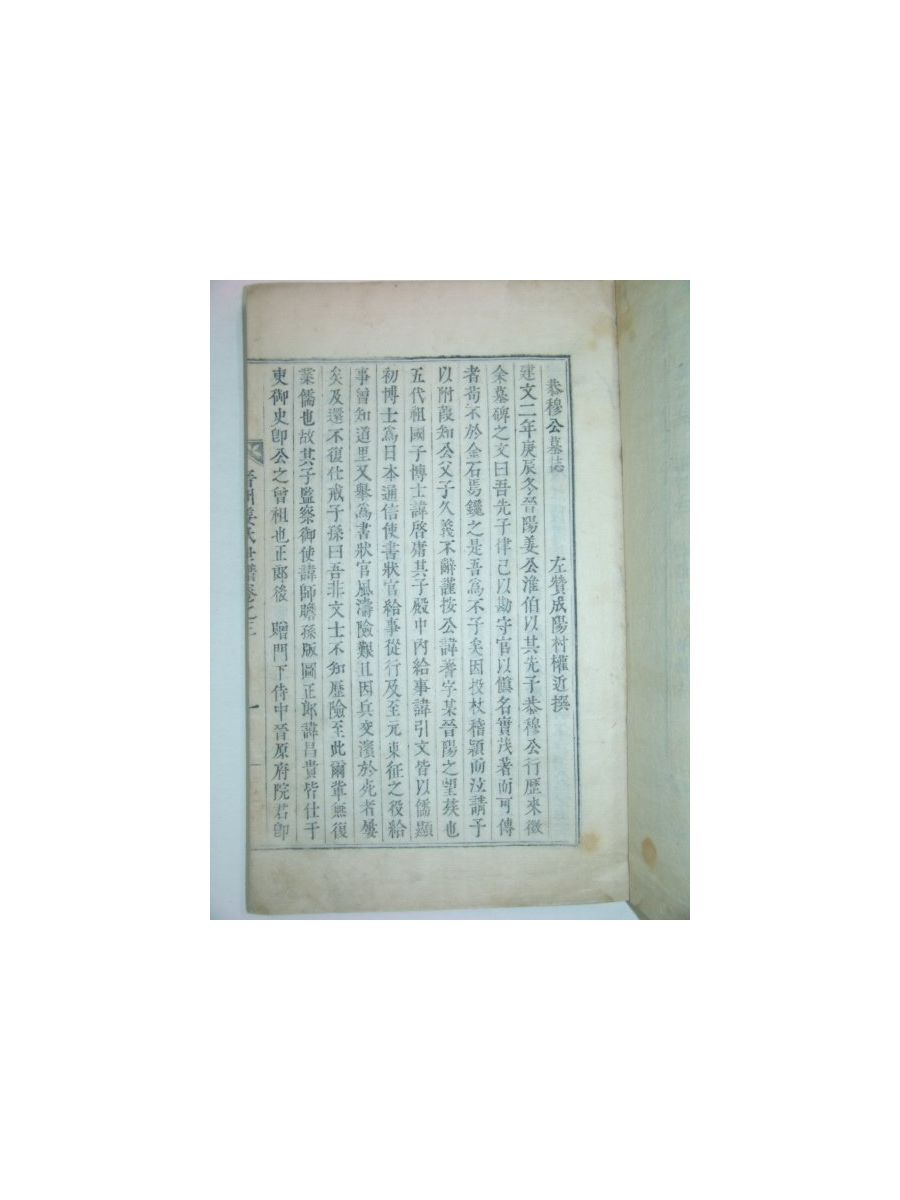 恭穆公墓誌
左贊成陽村權近撰
建文二年庚辰冬晉陽姜公淮伯以其先子恭穆公行歷來徵
余墓碑之文曰吾先子律己以勤守官以愼名實茂著而可傳
者苟不於金石焉鑱之是吾爲不子矣因投杖稽顙而泣請予
以附葭知公父子久義不辭謹按公諱蓍字某晉陽之望族也
五代祖國子博士諱啓庸其子殿中內給事諱引文皆以儒顯
初博士爲日本通信使書狀官給事從行及至元東征之役給
事曾知道里又擧爲書狀官風濤險艱且因兵交濱於死者屢
矣及還不復仕戒子孫曰吾非文士不知歷險至此爾軰無復
業儒也故其子監察御使諱師瞻孫版圖正郎諱昌貴皆仕于
吏御史卽公之曾祖也正郎後 贈門下侍中晉原府院君卽
晉州姜氏世譜卷之三
一